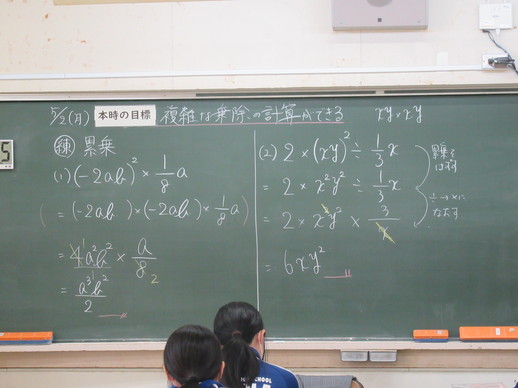 5/2(月) 本時の目標 複雑な乗除の計算ができる
xy×xy
練 累乗
(1) (-2ab)² × 1/8 a
= (-2ab) × (-2ab) × 1/8 a
= 4a²b² × a/8
= a³b²/2
(2) 2 × (xy)² ÷ 1/3 x
= 2 × x²y² ÷ 1/3 x
= 2 × x²y² × 3/x
= 6xy²
累乗を
はずす
÷→×に
なおす
5